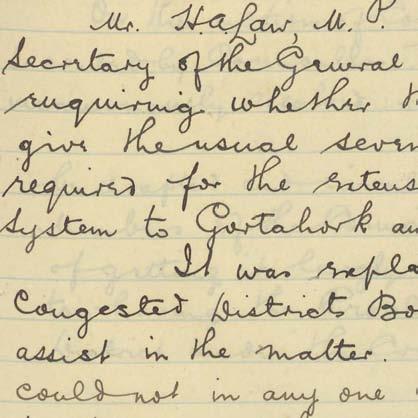 Mr. H.A Law, M. P.
Secretary of the General
enquiring whether
give the usual seven
required for the extens
system to Gortahork an
It was repla
Congested Districts Bo
assist in the matter.
could not in any one